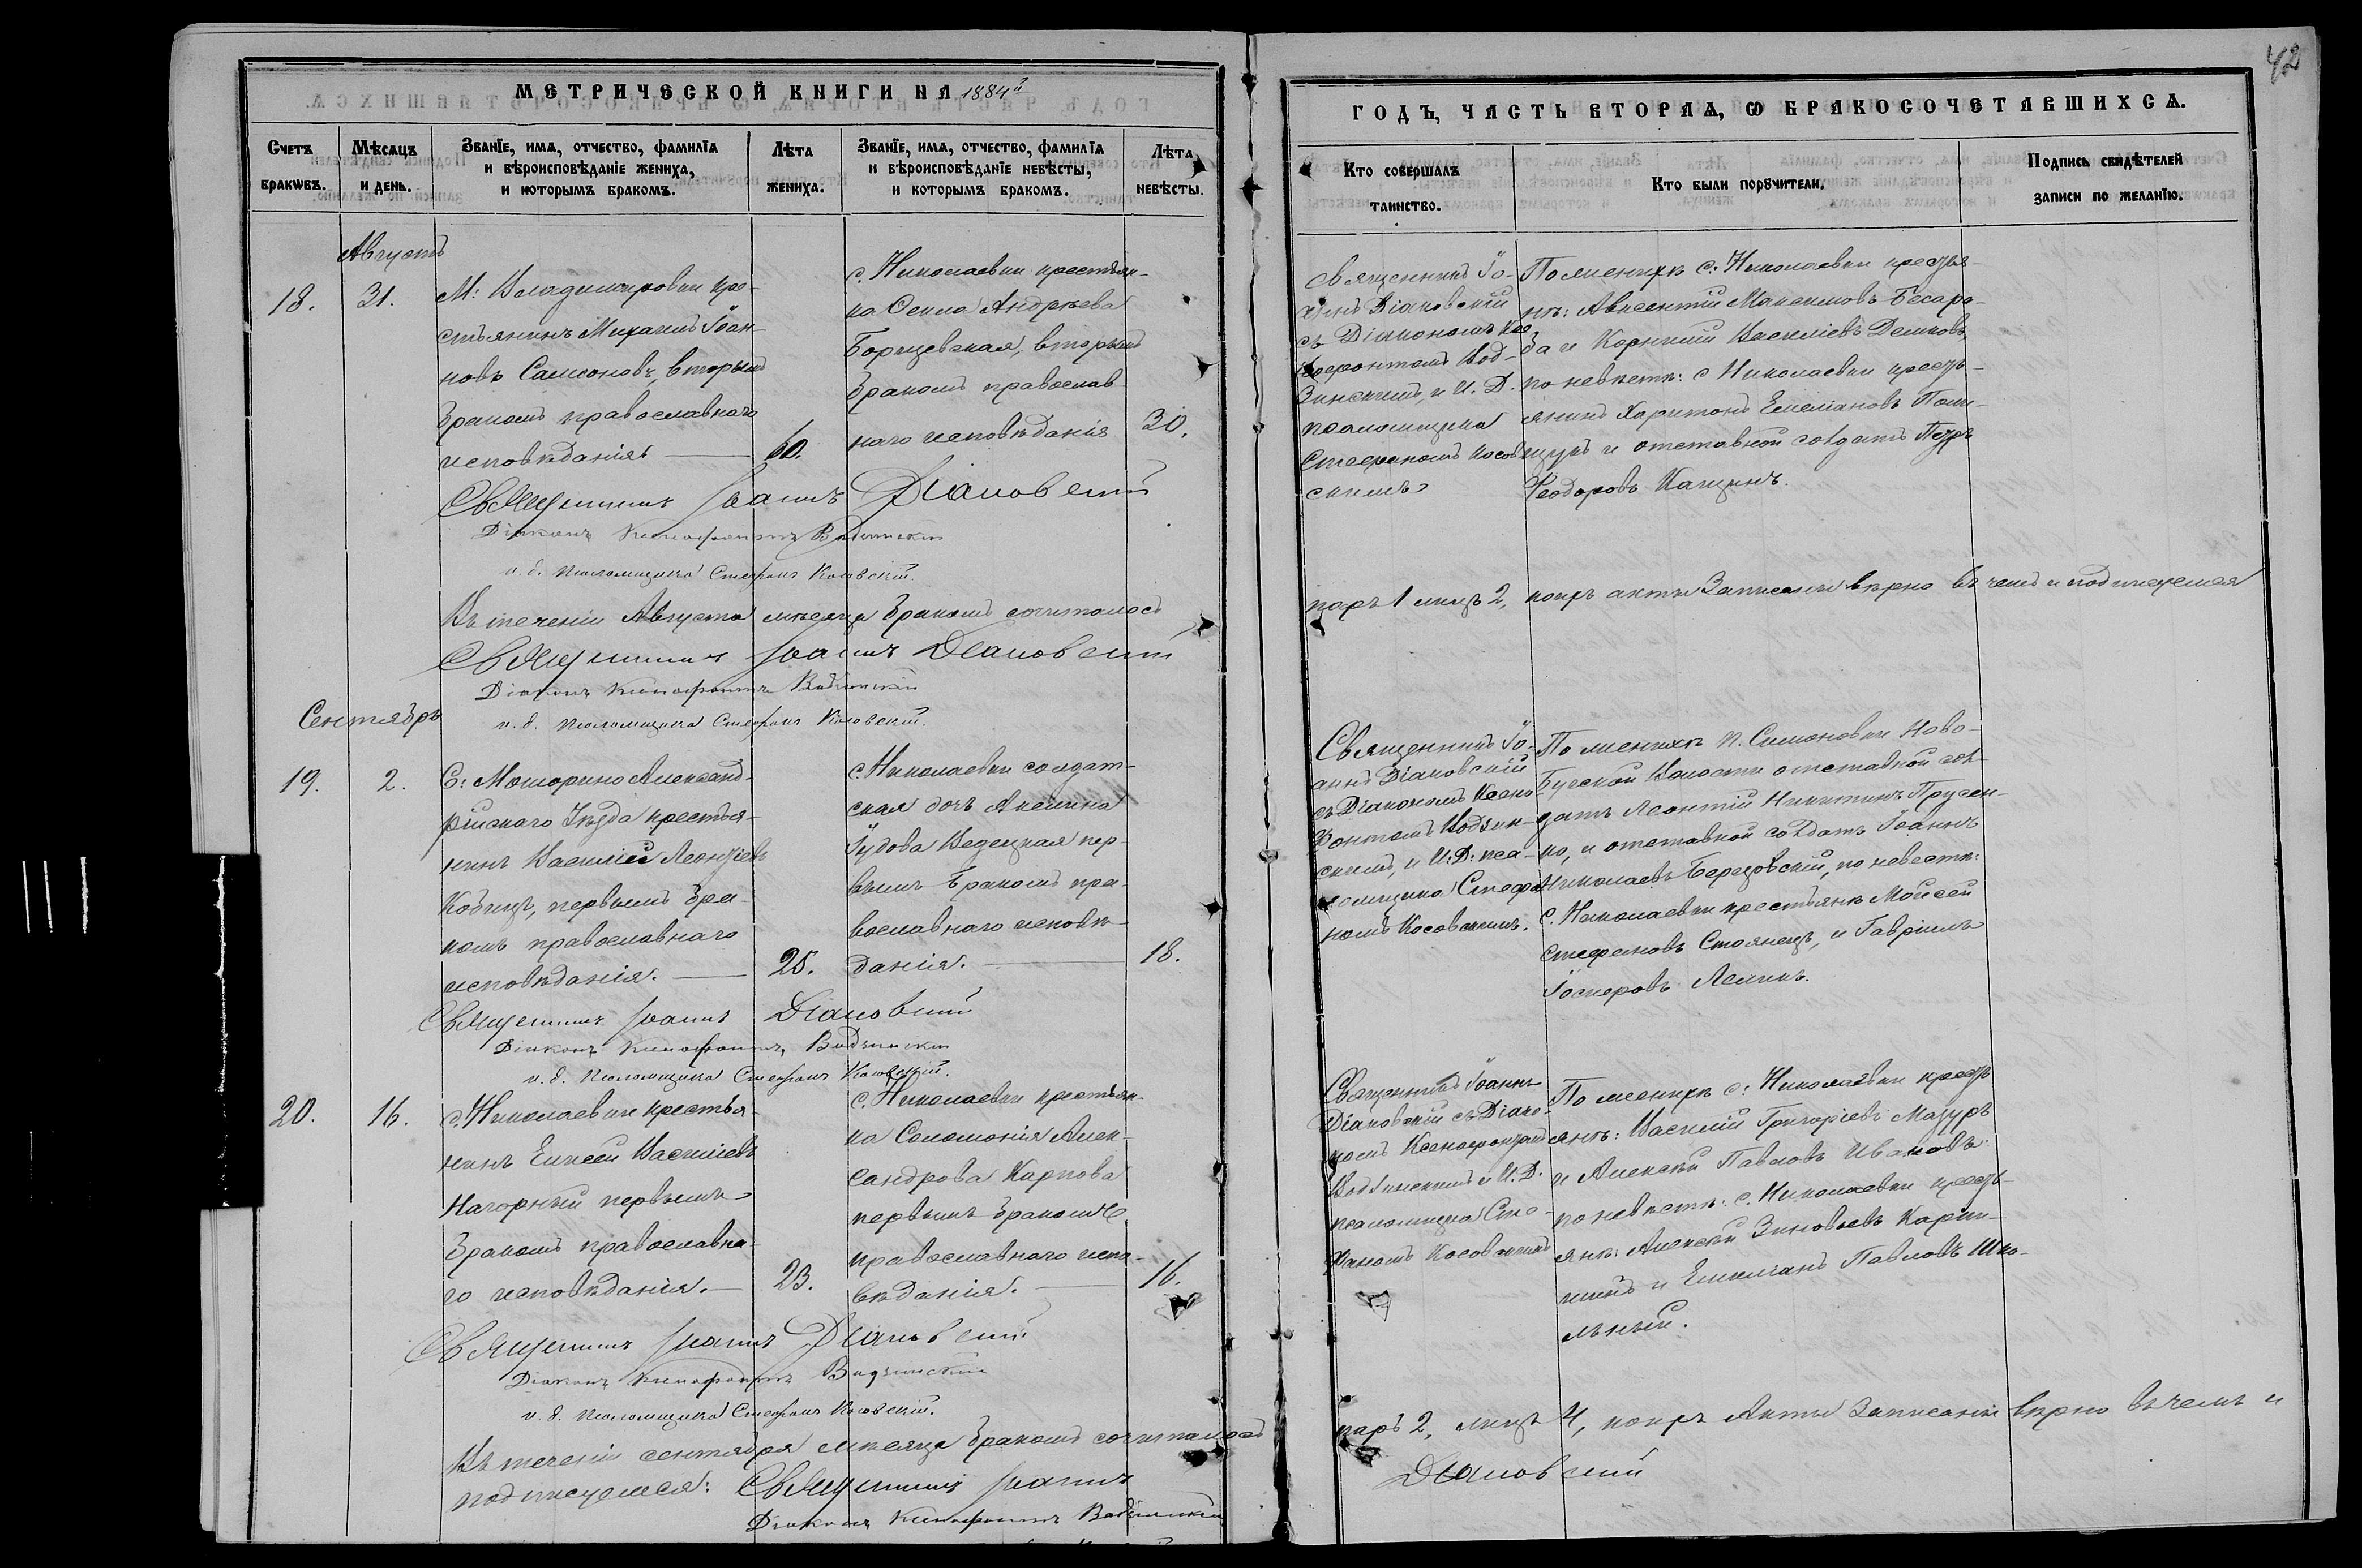 42
МЕТРИЧЕСКОЙ КНИГИ НА 1884й
ГОДЪ, ЧАСТЬ ВТОРАЯ, Ѡ БРАКОСОЧЕТАВШИХСѦ.
Счетъ браквъ.
Мѣсѧцъ и день.
Званїе, имѧ, отчество, фамилїѧ
и вѣроисповѣданїе жениха,
и которымъ бракомъ.
Лѣта жениха.
Званїе, имѧ, отчество, фамилїѧ
и вѣроисповѣданїе невѣсты,
и которымъ бракомъ.
Лѣта невѣсты.
Кто совершалъ таинство.
Кто были порꙋчители.
Подпись свидѣтелей записи по желанїю.
Августъ
18.
31.
М: Владимировки кре-
стьянинъ Михаилъ Іоан-
новъ Самсоновъ, вторымъ
бракомъ православнаго
исповѣданія
60.
с. Николаевки крестьян-
ка Андрѣева
Борщевская, вторымъ
бракомъ православ-
наго исповѣданія
30.
Священникъ Іо-
аннъ Діановскій
съ Діакономъ Ксе-
нофонтомъ Вод-
зинскимъ, и И. Д.
псаломщика
Стефаномъ Косов-
скимъ
По женихѣ с: Николаевки крестья-
нѣ: Авксентій Максимовъ Бесара-
ба и Корнилій Васильевъ Демковъ,
по невѣстѣ: с Николаевки кресть-
янинъ Харитонъ Емеліановъ
и отставной солдатъ Петръ
Ѳеодоровъ Кащинъ.
Священникъ Іоаннъ Діановскій
Діаконъ Ксенофонтъ Водзинскій
и. д. Псаломщика Стефанъ Косовскій.
Въ теченіи Августа мѣсяца бракомъ сочиталось
паръ 1 лицъ 2, акты записаны вѣрно въ чемъ и подписуемся
Священникъ Іоаннъ Діановскій
Діаконъ Ксенофонтъ Водзинскій
и. д. Псаломщика Стефанъ Косовскій.
Сентябрь
19.
2.
С: Мошорино Александ-
рійскаго Уѣзда крестья-
нинъ Василій Леонтіевъ
Кобецъ, первымъ бра-
комъ православнаго
исповѣданія.
25.
с. Николаевки солдат-
ская дочь Акилина
Іудова Ведецкая пер-
вымъ бракомъ пра-
вославнаго исповѣ-
данія.
18.
Священникъ Іо-
аннъ Діановскій
съ Діакономъ Ксено
фонтомъ Водзин-
скимъ, и И: Д: пса-
ломщика Стефа-
номъ Косовскимъ.
По женихѣ п. Симоновки Ново-
Бугской Волости отставной сол-
датъ Леонтій Никитинъ Прусен-
ко, и отставной солдатъ Іоаннъ
Николаевъ Березовскій, по невѣстѣ:
с. Николаевки крестьянѣ Мойсей
Стефановъ Стоянецъ, и Гавріилъ
Іосифовъ
Священникъ Іоаннъ Діановскій
Діаконъ Ксенофонтъ Водзинскій
и. д. Псаломщика Стефанъ Косовскій.
20.
16.
с. Николаевки крестья-
нинъ Елисей Васильевъ
Нагорный первымъ
бракомъ православна-
го исповѣданія.
23.
с. Николаевки крестьян-
ка Соломонія Алек-
сандрова Карпова
первымъ бракомъ
православнаго испо-
вѣданія.
16.
Священникъ Іоаннъ
Діановскій съ Діако-
номъ Ксенофонтомъ
Водзинскимъ и И. Д.
псаломщика Сте-
фаномъ Косовскимъ
По женихѣ с: Николаевки кресть
янѣ: Василій Григоріевъ Мазуръ
и Алексѣй Павловъ Ивановъ.
по невѣстѣ: с. Николаевки кресть-
янѣ: Алексѣй Зиновьевъ
и Емеліанъ Павловъ Шко-
льный.
Священникъ Іоаннъ Діановскій
Діаконъ Ксенофонтъ Водзинскій
и. д. Псаломщика Стефанъ Косовскій.
Въ теченіи сентября мѣсяца бракомъ сочиталось
паръ 2, лицъ 4, Акты записаны вѣрно въ чемъ и
подписуемся: Священникъ Іоаннъ
Діановскій
Діаконъ Ксенофонтъ Водзинскій